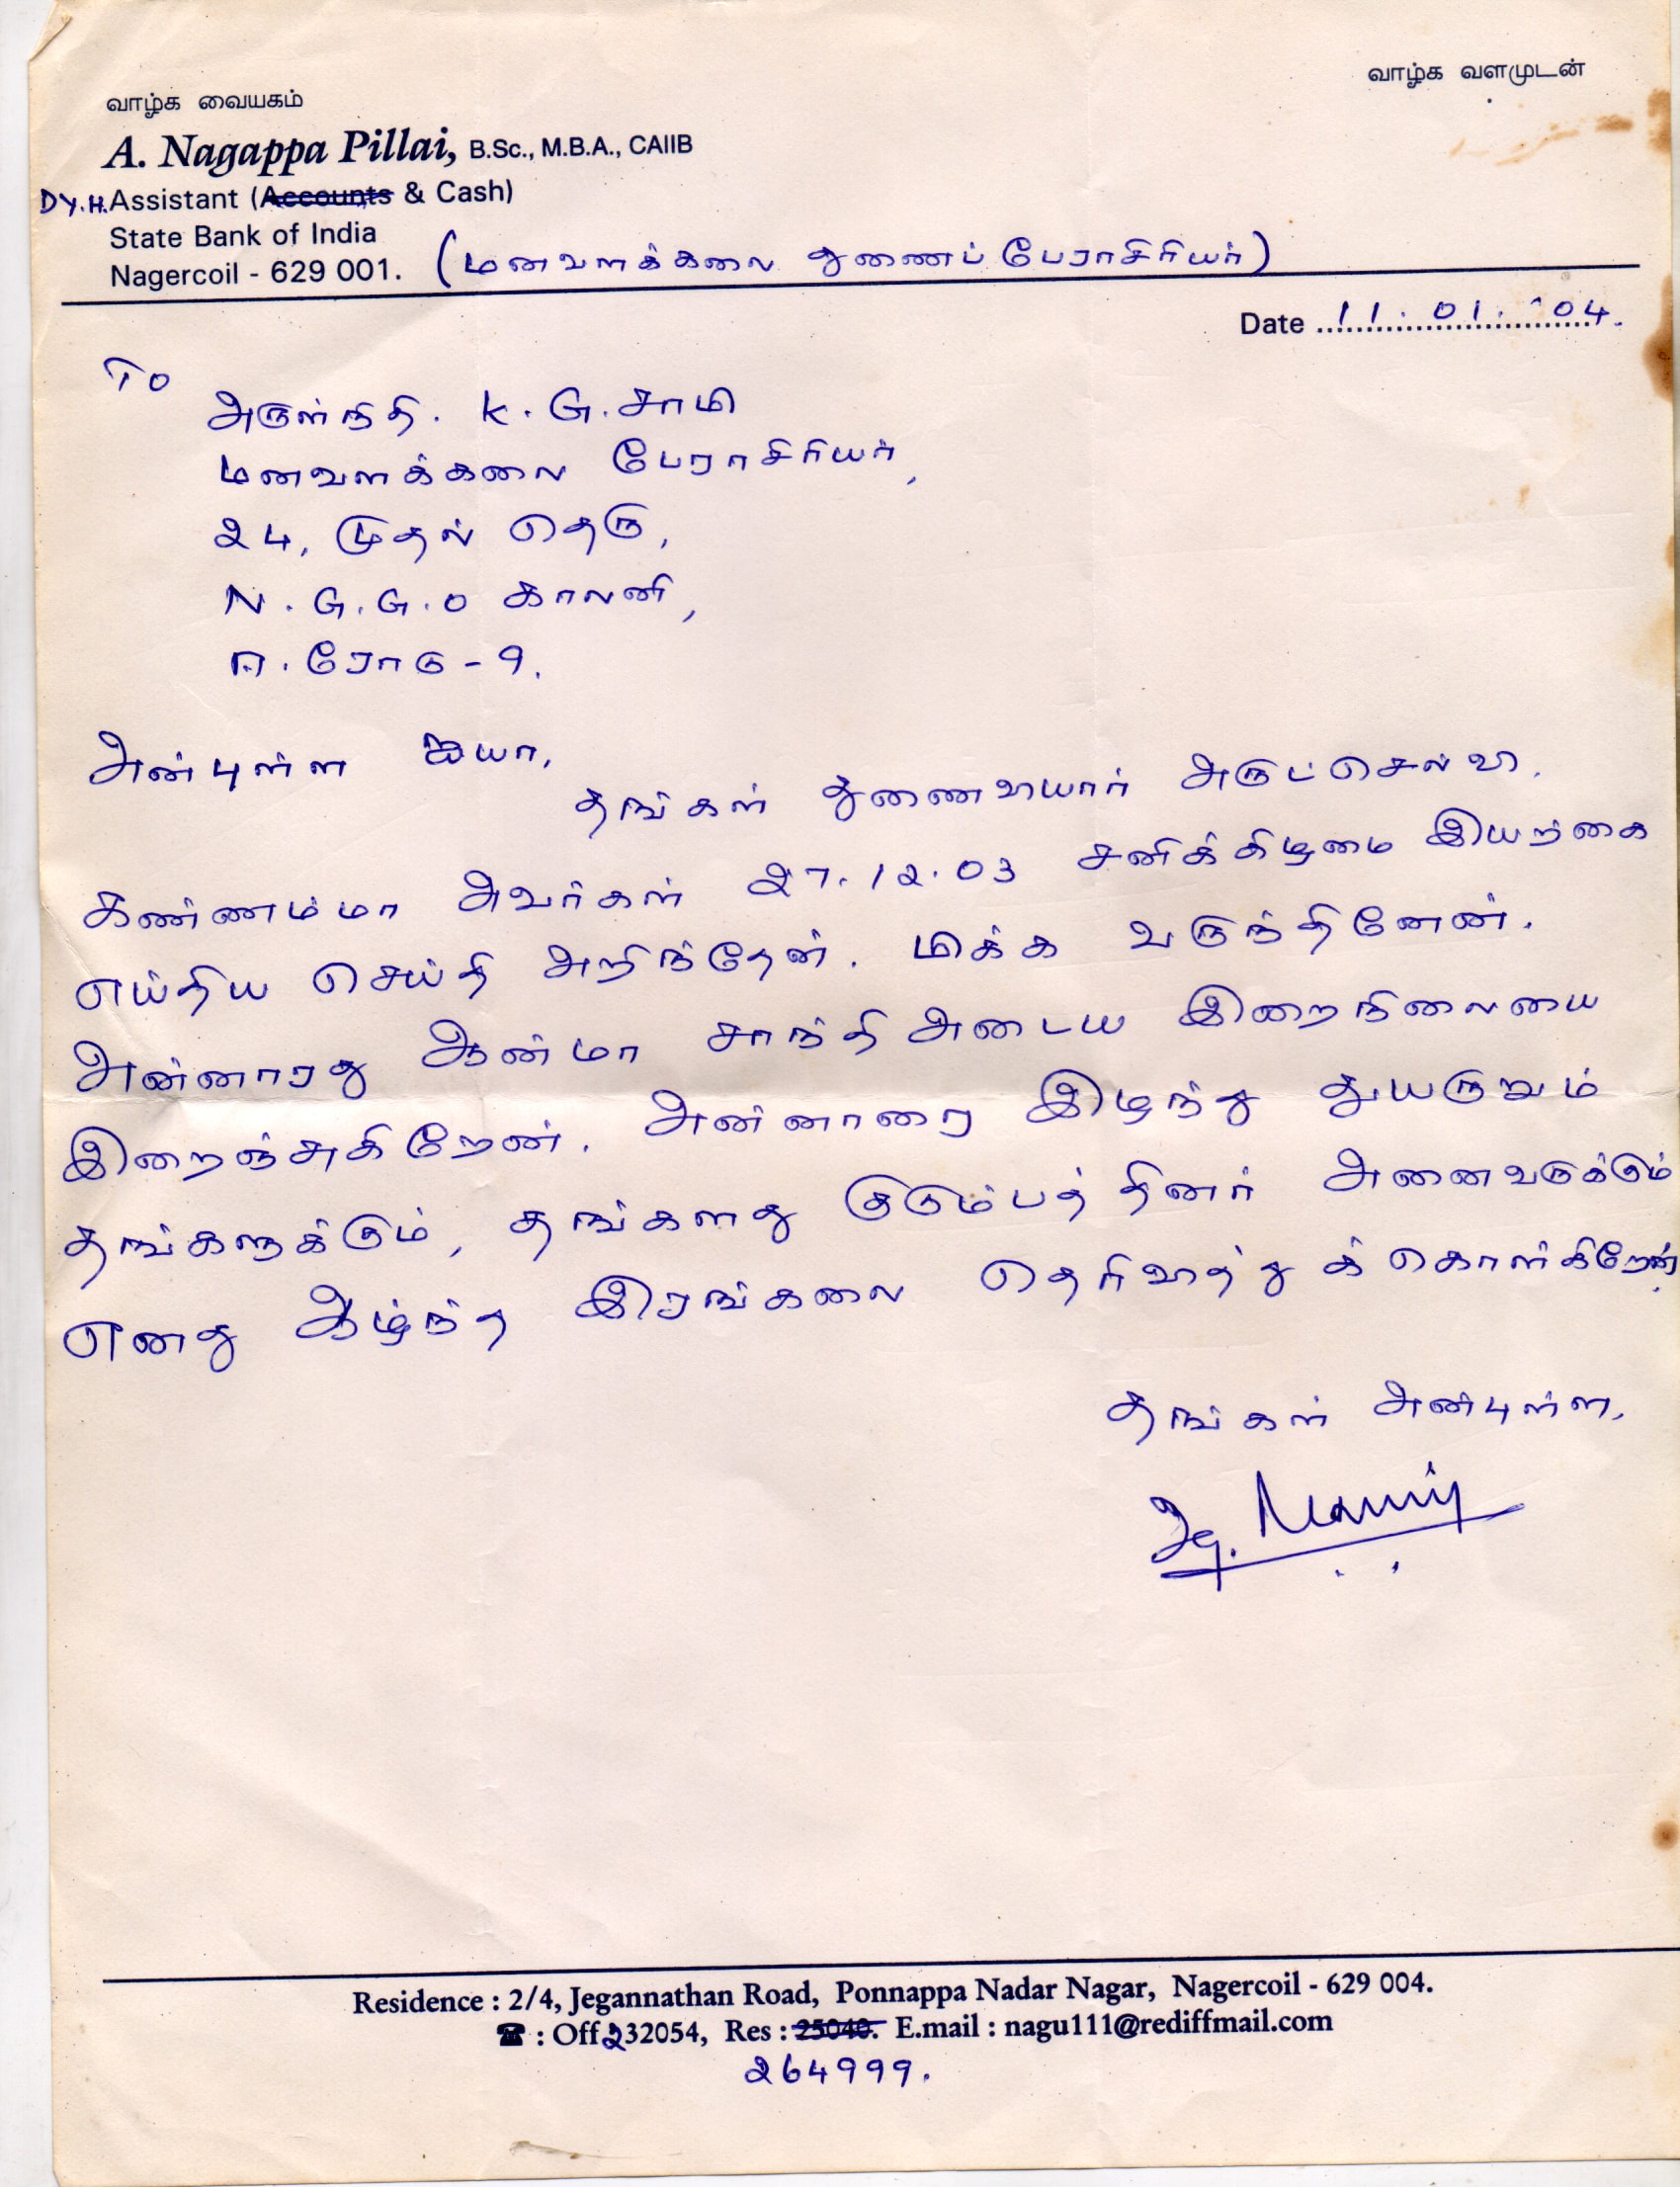 வாழ்க வையகம்
வாழ்க வளமுடன்
A. Nagappa Pillai, B.Sc., M.B.A., CAIIB
DY.H. Assistant (Accounts & Cash)
State Bank of India
Nagercoil - 629 001. (மனவளக்கலை துணைப் பேராசிரியர்)
Date 11.01.'04.
To
அருள்நிதி. K.G.சாமி
மனவளக்கலை பேராசிரியர்,
24, முதல் தெரு,
N.G.G.O காலனி,
ஈ.ரோடு-9.
அன்புள்ள ஐயா,
தங்கள் துணைவியார் அருட்செல்வி.
கண்ணம்மா அவர்கள் 27.12.03 சனிக்கிழமை இயற்கை
எய்திய செய்தி அறிந்தேன். மிக்க வருந்தினேன்.
அன்னாரது ஆன்மா சாந்தி அடைய இறைநிலையை
இறைஞ்சுகிறேன். அன்னாரை இழந்து துயருறும்
தங்களுக்கும், தங்களது குடும்பத்தினர் அனைவருக்கும்
எனது ஆழ்ந்த இரங்கலை தெரிவித்துக் கொள்கிறேன்.
தங்கள் அன்புள்ள,
Residence : 2/4, Jegannathan Road, Ponnappa Nadar Nagar, Nagercoil - 629 004.
☎ : Off 232054, Res : 25040. E.mail : nagu111@rediffmail.com
264999.